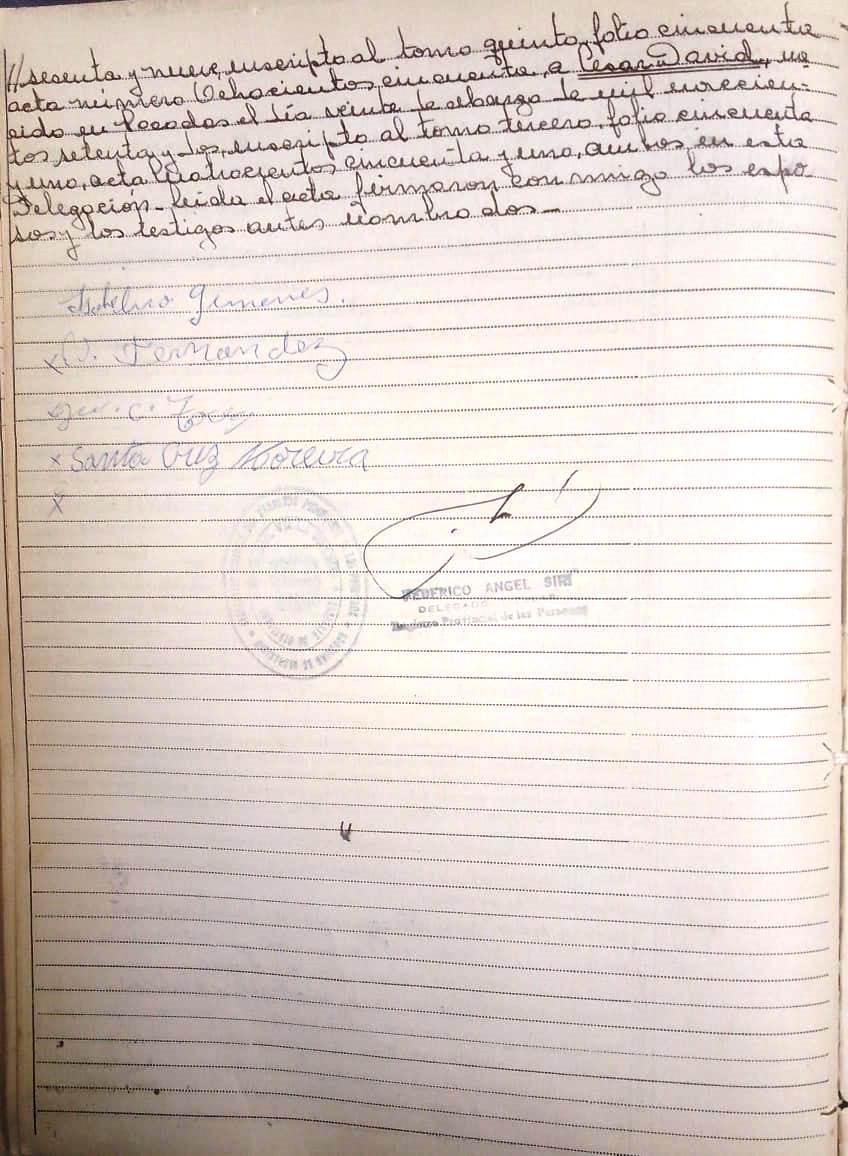 //sesenta y nueve, inscripto al tomo quinto, folio cincuenta
acta número Ochocientos cincuenta, a Cesar David, na
cido en Posadas el día veinte de Marzo de mil novecien-
tos setenta y dos, inscripto al tomo tercero, folio cincuenta
y uno, acta cuatrocientos cincuenta y uno, ambos en esta
Delegación - Leida el acta firmaron conmigo los espo
sos y los testigos antes nombrados -
Gimenes.
x Fernandez
x Santa Cruz Moreira
x
FEDERICO ANGEL SIRI
DELEGADO
Registro Provincial de las Personas